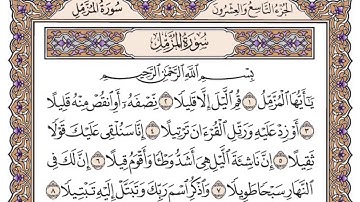 الجزء التاسع والعشرون
سورة المزمل
سُورَةُ المُزَّمِّل
بِسْمِ اللَّهِ الرَّحْمَٰنِ الرَّحِيمِ
يَا أَيُّهَا الْمُزَّمِّلُ ١ قُمِ اللَّيْلَ إِلَّا قَلِيلًا ٢ نِصْفَهُ أَوِ انقُصْ مِنْهُ قَلِيلًا
٣ أَوْ زِدْ عَلَيْهِ وَرَتِّلِ الْقُرْءَانَ تَرْتِيلًا ٤ إِنَّا سَنُلْقِي عَلَيْكَ قَوْلًا
ثَقِيلًا ٥ إِنَّ نَاشِئَةَ اللَّيْلِ هِيَ أَشَدُّ وَطْئًا وَأَقْوَمُ قِيلًا ٦ إِنَّ لَكَ فِي
النَّهَارِ سَبْحًا طَوِيلًا ٧ وَاذْكُرِ اسْمَ رَبِّكَ وَتَبَتَّلْ إِلَيْهِ تَبْتِيلًا ٨